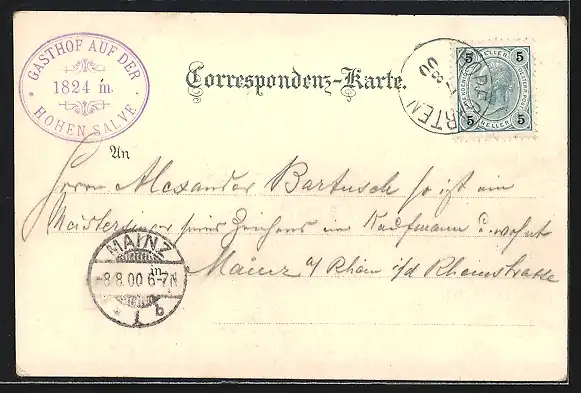 GASTHOF AUF DER
1824 m.
HOHEN SALVE
Correspondenz-Karte.
5 HELLER 5
5 HELLER 5
8 00
An
Herrn Alexander Bartusch so ist ein
Meistersinger seines Zeichens ein Kaufmann u. wohnt
in Mainz a/ Rhein i/d Rheinstrasse
MAINZ
-8.8.00 6-7N